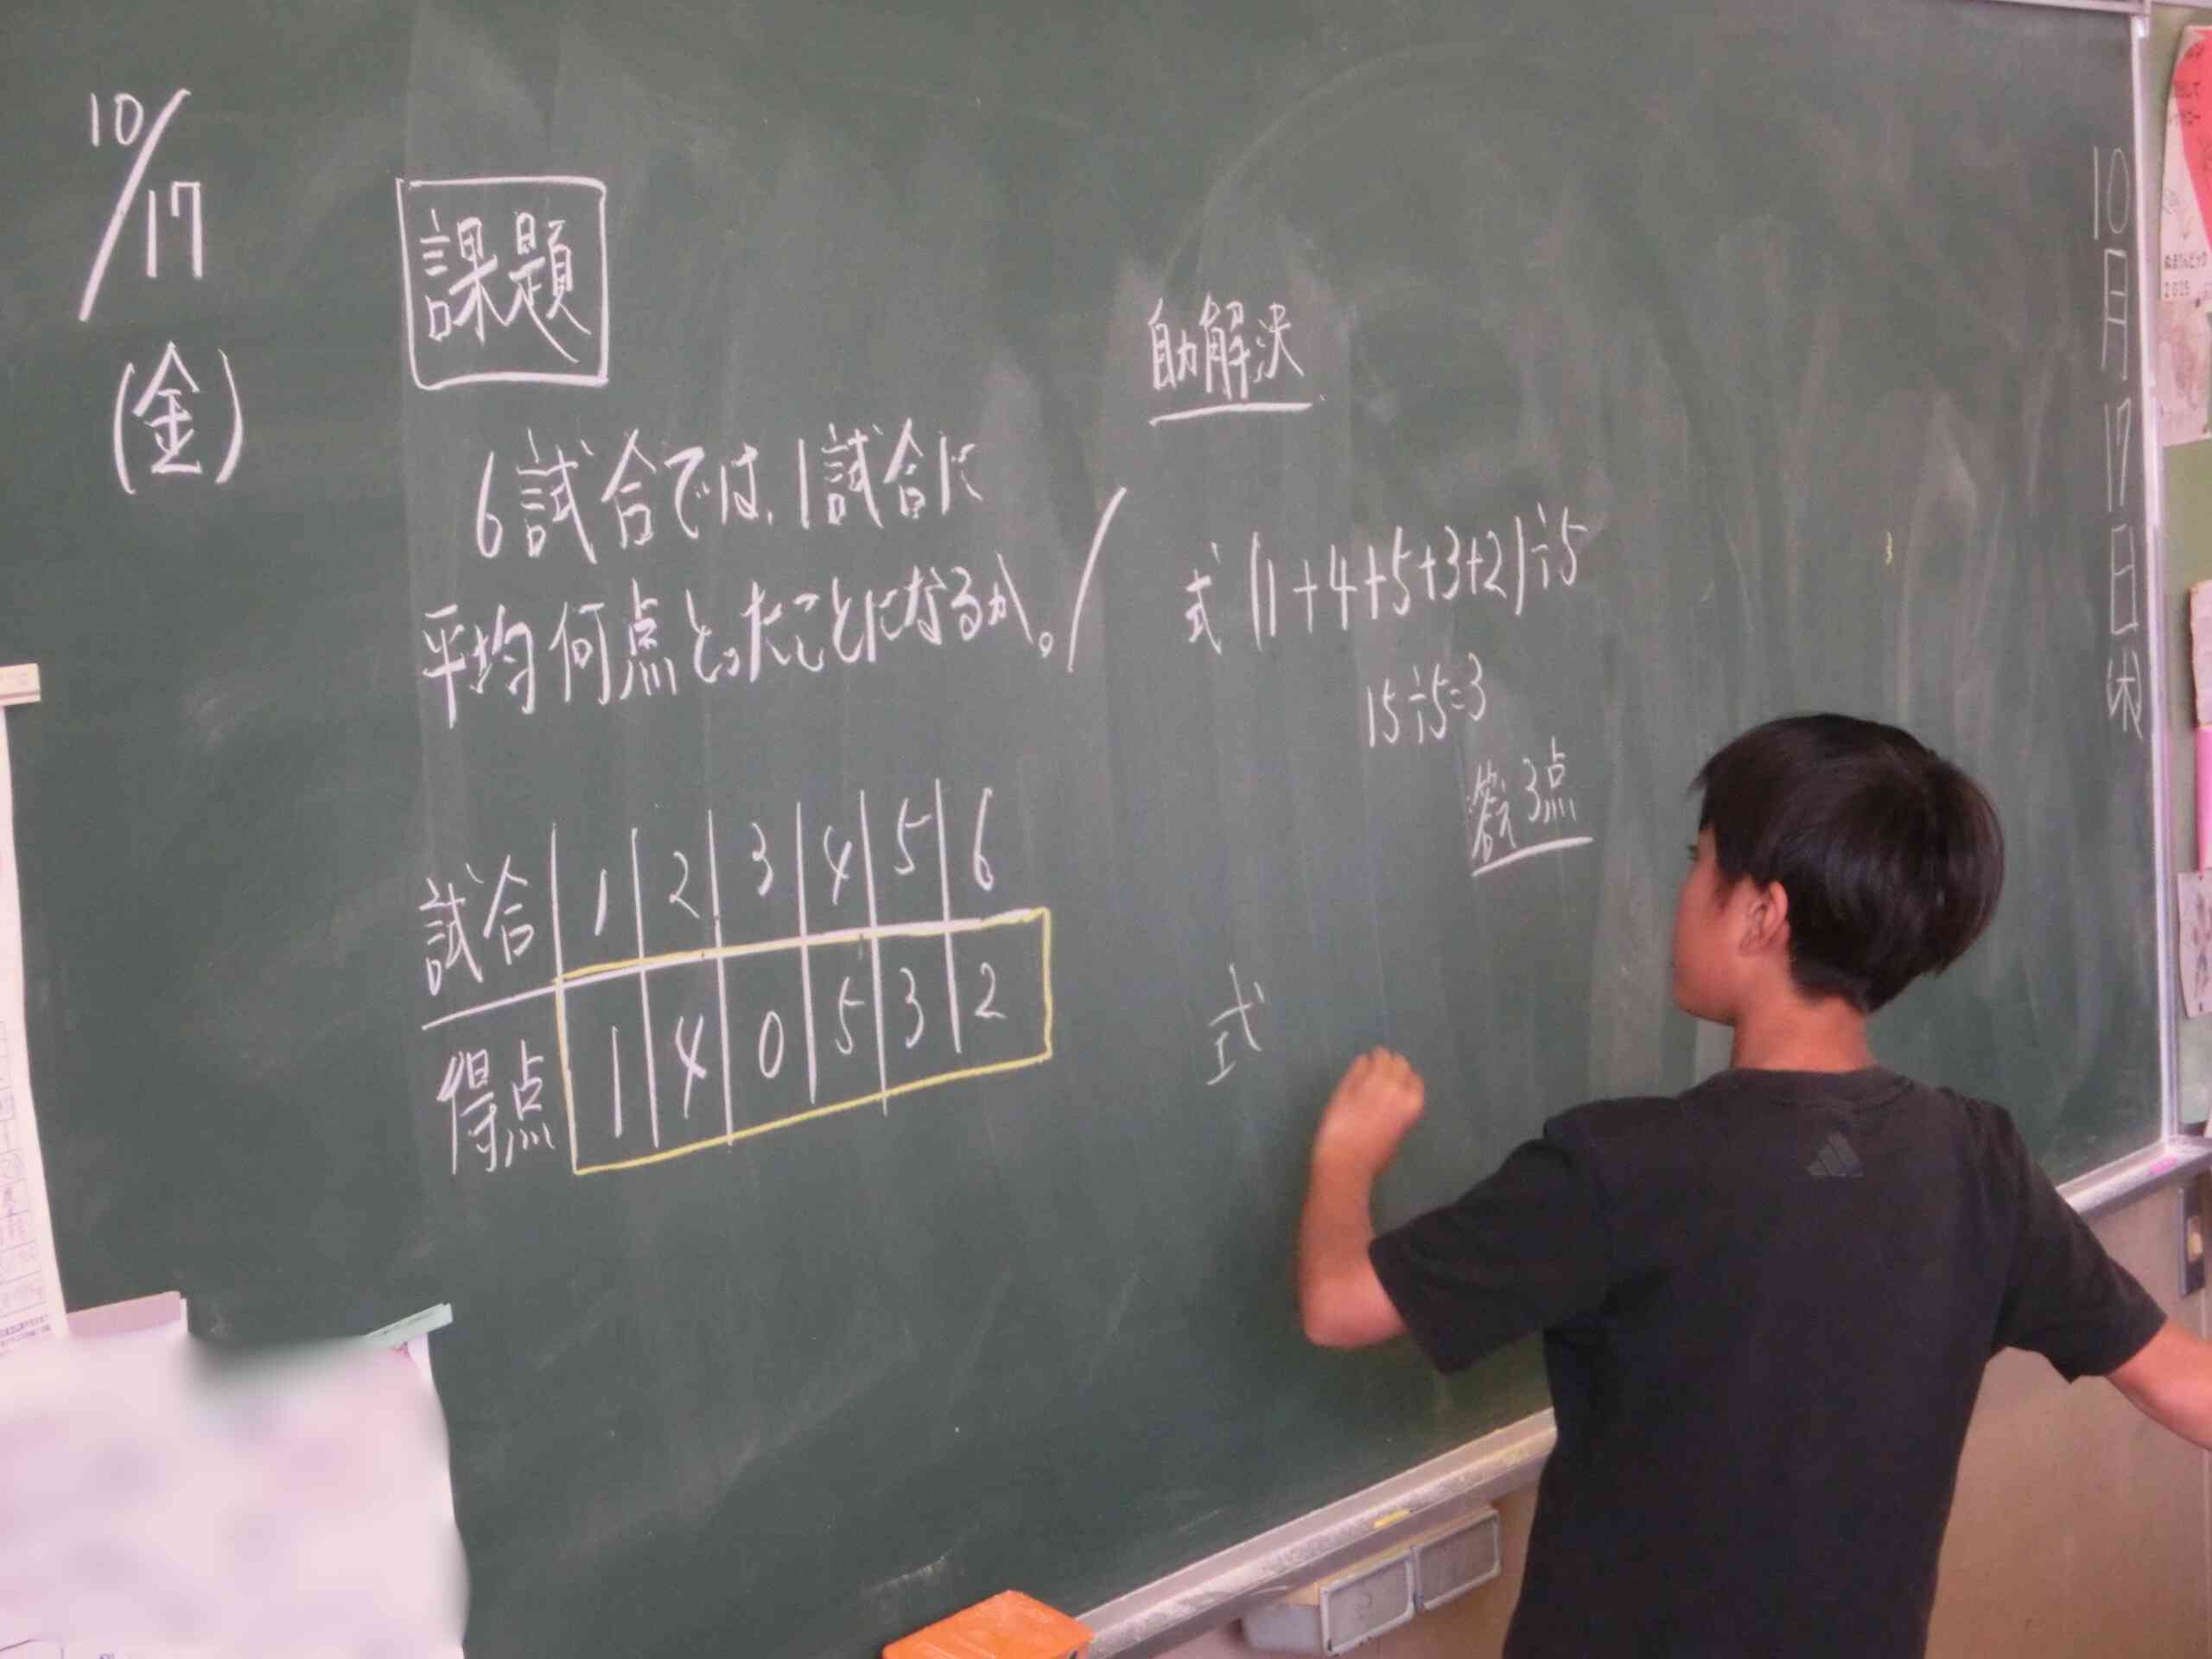 10/17
(金)
課題
6試合では、1試合に
平均何点とったことになるか。
試合 1 2 3 4 5 6
得点 1 4 0 5 3 2
自力解決
式 (1+4+5+3+2)÷5
15÷5=3
答え 3点
式
10月17日
2025